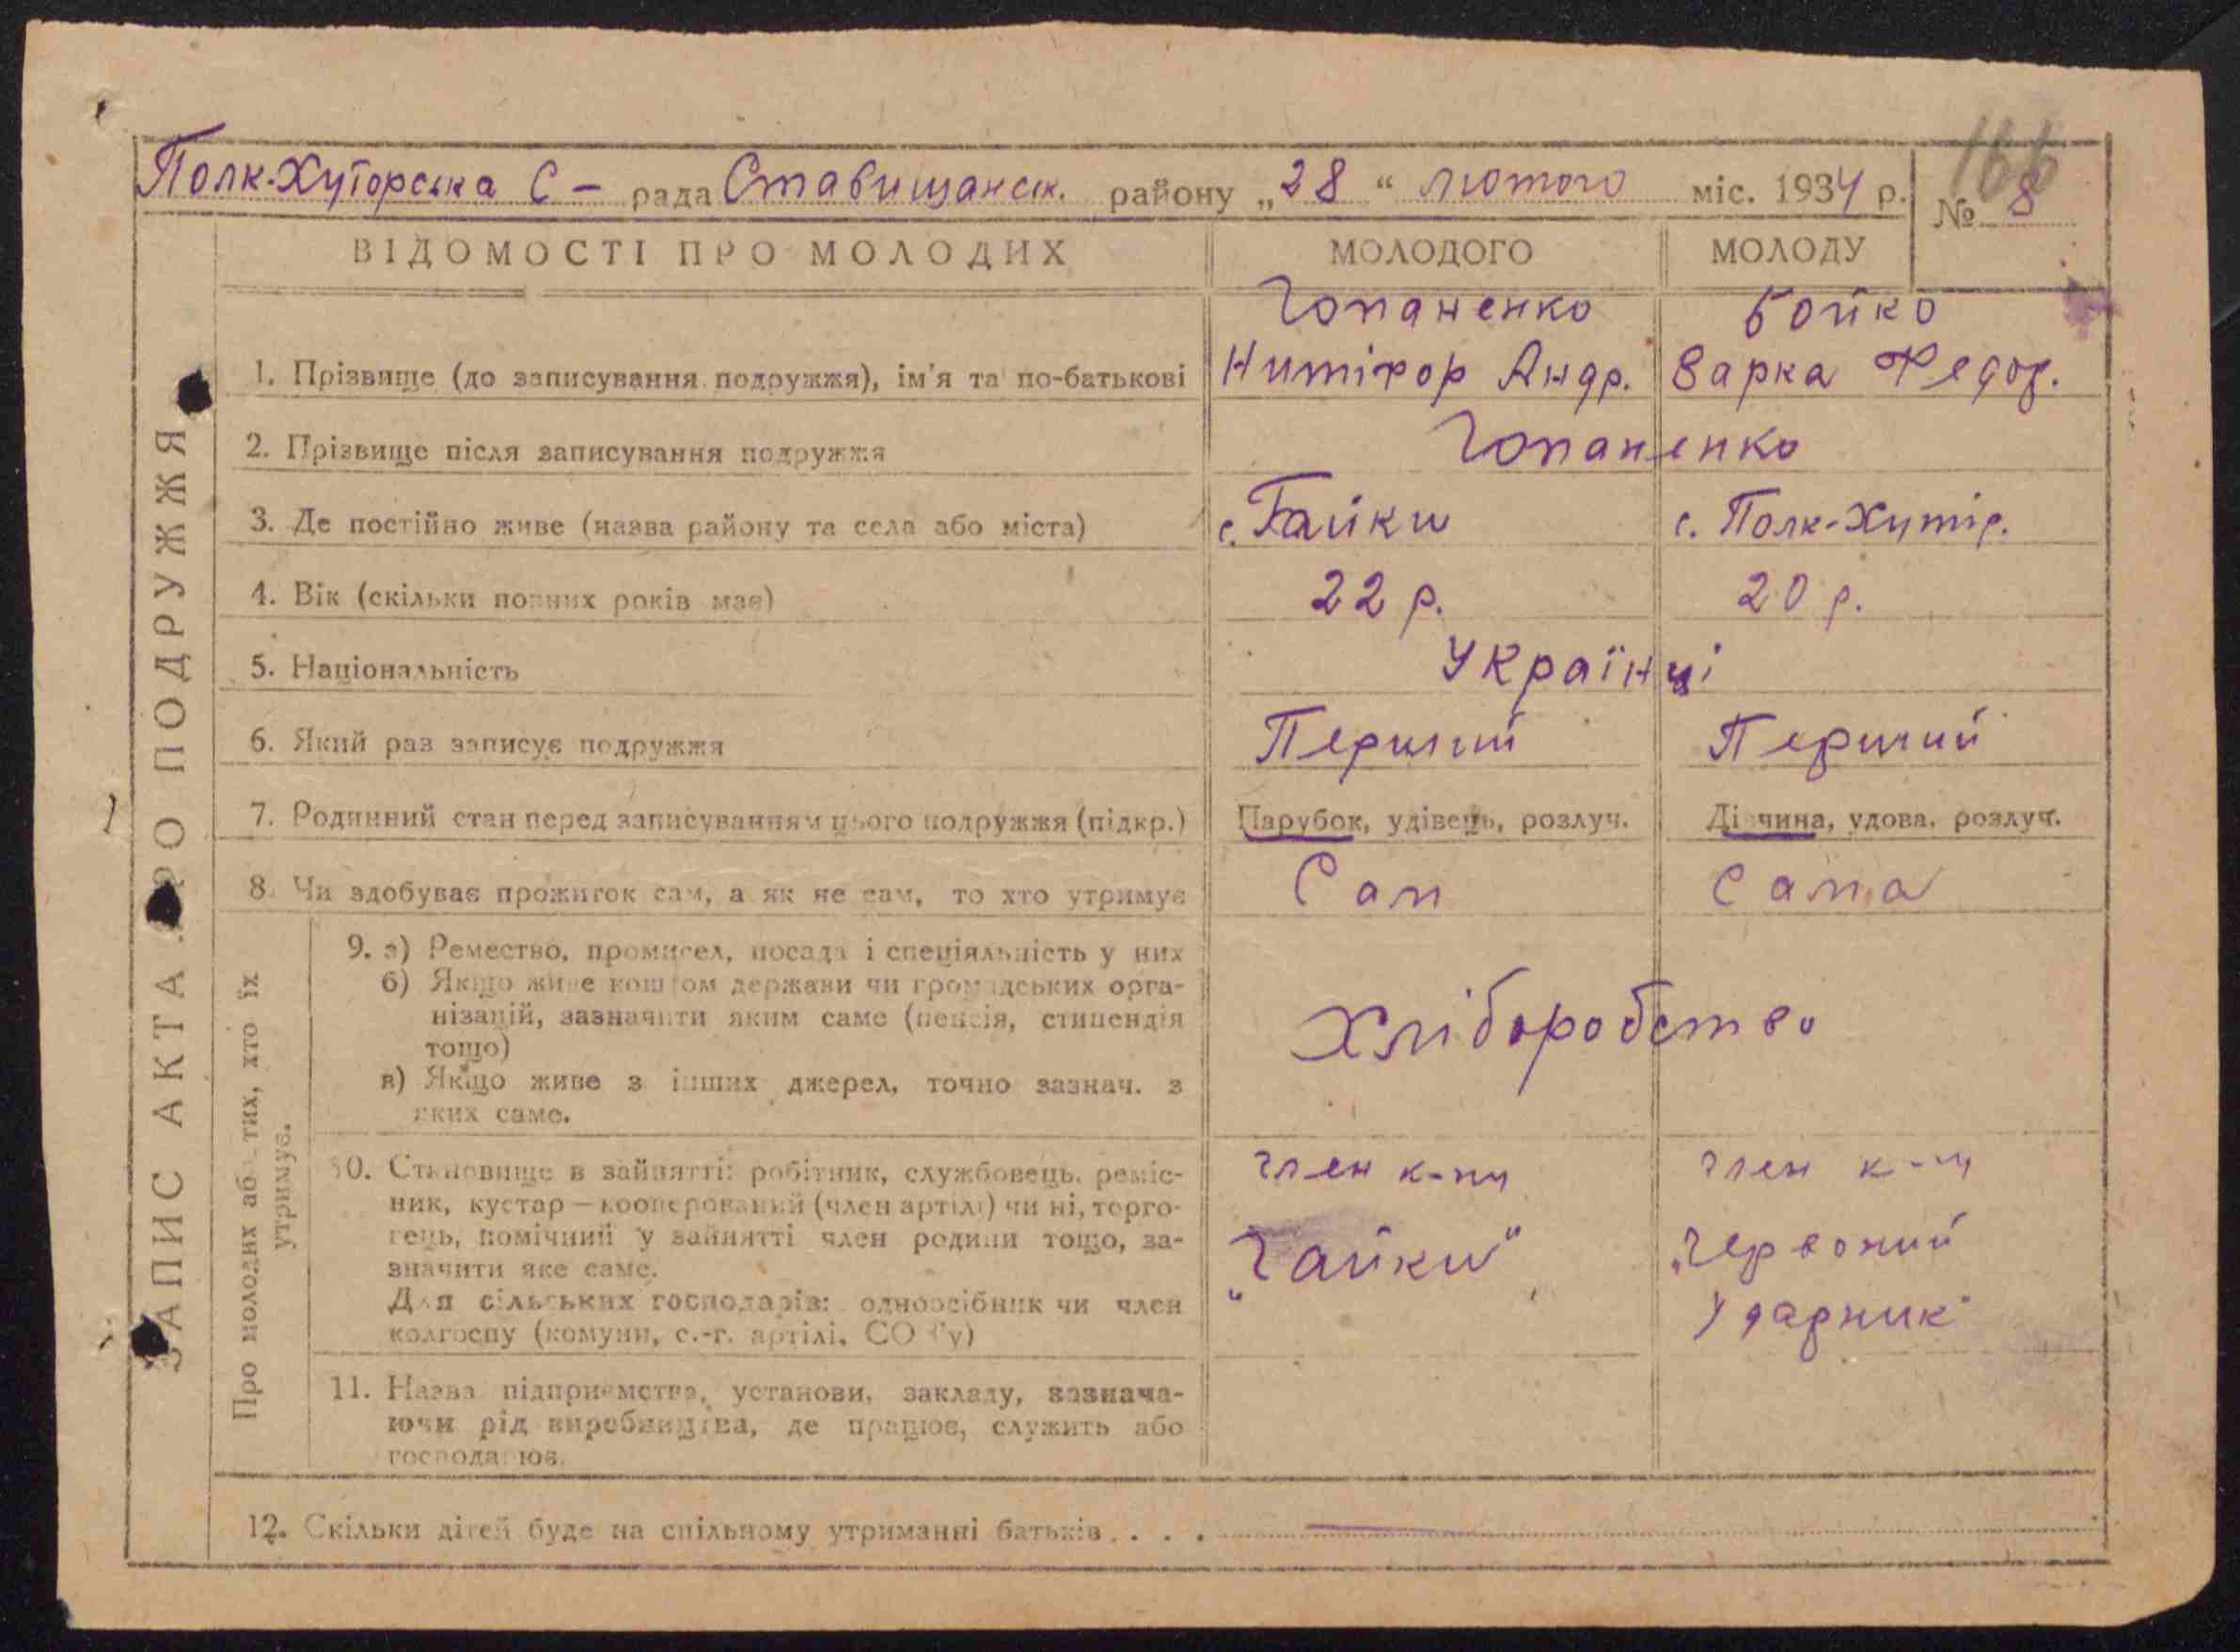 166
Полк-Хуторська С – рада Ставищанськ. району „28“ лютого міс. 1934 р. № 8
ВІДОМОСТІ ПРО МОЛОДИХ МОЛОДОГО МОЛОДУ
ЗАПИС АКТА ПРО ПОДРУЖЖЯ
Гопаненко Бойко
1. Прізвище (до записування подружжя), ім'я та по-батькові Нитіфор Андр. Варка Федор.
2. Прізвище після записування подружжя Гопаненко
3. Де постійно живе (назва району та села або міста) с. Гайки с. Полк-Хутір.
4. Вік (скільки повних років має) 22 р. 20 р.
5. Національність Українці
6. Який раз записує подружжя Перший Перший
7. Родинний стан перед записуванням цього подружжя (підкр.) Парубок, удівець, розлуч. Дівчина, удова, розлуч.
8. Чи здобуває прожиток сам, а як не сам, то хто утримує Сам Сама
Про молодих або тих, хто їх утримує.
9. а) Ремество, промисел, посада і спеціяльність у них
б) Якщо живе коштом держави чи громадських орга-
нізацій, зазначити яким саме (пенсія, стипендія
тощо)
Хліборобство
в) Якщо живе з інших джерел, точно зазнач. з
яких саме.
10. Становище в зайнятті: робітник, службовець, реміс- член к-пу член к-пу
ник, кустар — кооперований (член артілі) чи ні, торго-
вець, помічний у зайнятті член родини тощо, за- „Гайки“ „Червоний
значити яке саме.
Для сільських господарів: одноосібник чи член Ударник“
колгоспу (комуни, с.-г. артілі, СОЗ'у)
11. Назва підприємства, установи, закладу, зазнача-
ючи рід виробництва, де працює, служить або
господарює.
12. Скільки дітей буде на спільному утриманні батьків . . . . —